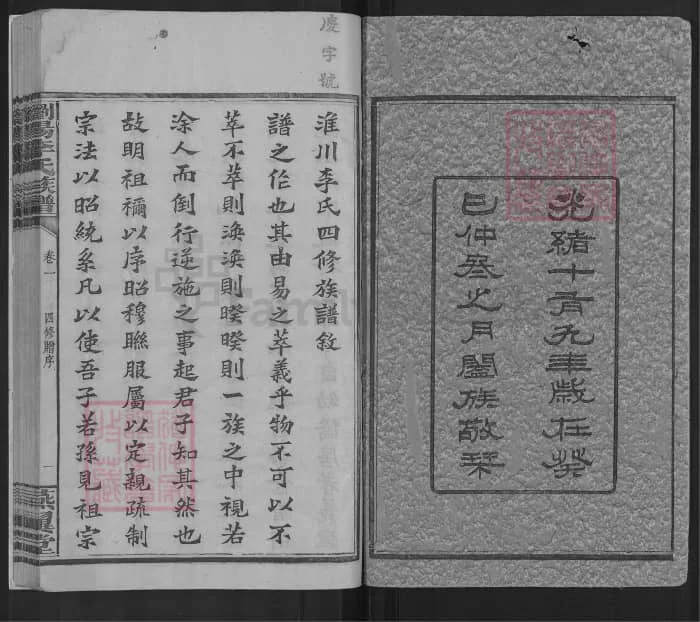 光緒十有九年歲在癸
巳仲叄之月闔族敬栞
慶字號
淮川李氏四修族譜敘
譜之作也其由易之萃義乎物不可以不
萃不萃則渙渙則暌暌則一族之中視若
涂人而倒行逆施之事起君子知其然也
故明祖禰以序昭穆聯服屬以定親疏制
宗法以昭統系凡以使吾子若孫見祖宗
瀏陽李氏族譜
卷一
四修贈序
一
燕翼堂